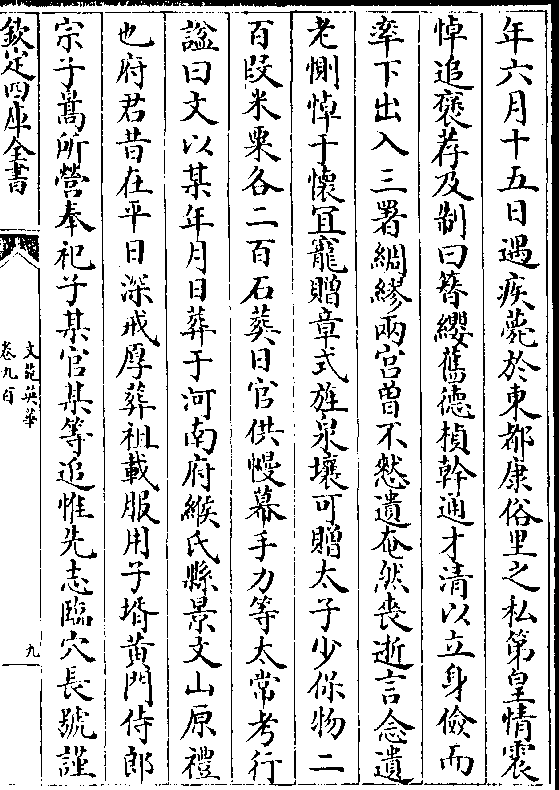 年六月十五日遇疾薨於東都康俗里之私第皇情震
悼追褒荐及制曰簪纓舊德楨幹通才清以立身儉而
率下出入三署綢繆兩宮曽不憗遺奄然喪逝言念遺
老惻悼于懷冝寵贈章式旌泉壤可贈太子少保物二
百段米粟各二百石葬日官供幔幕手力等太常考行
諡曰文以某年月日葬于河南府緱氏縣景文山原禮
也府君昔在平日深戒厚葬祖載服用子壻黄門侍郎
宗子暠所營奉祀子某官某等追惟先志臨穴長號謹
欽定四庫全書
文苑英華
卷九百
九